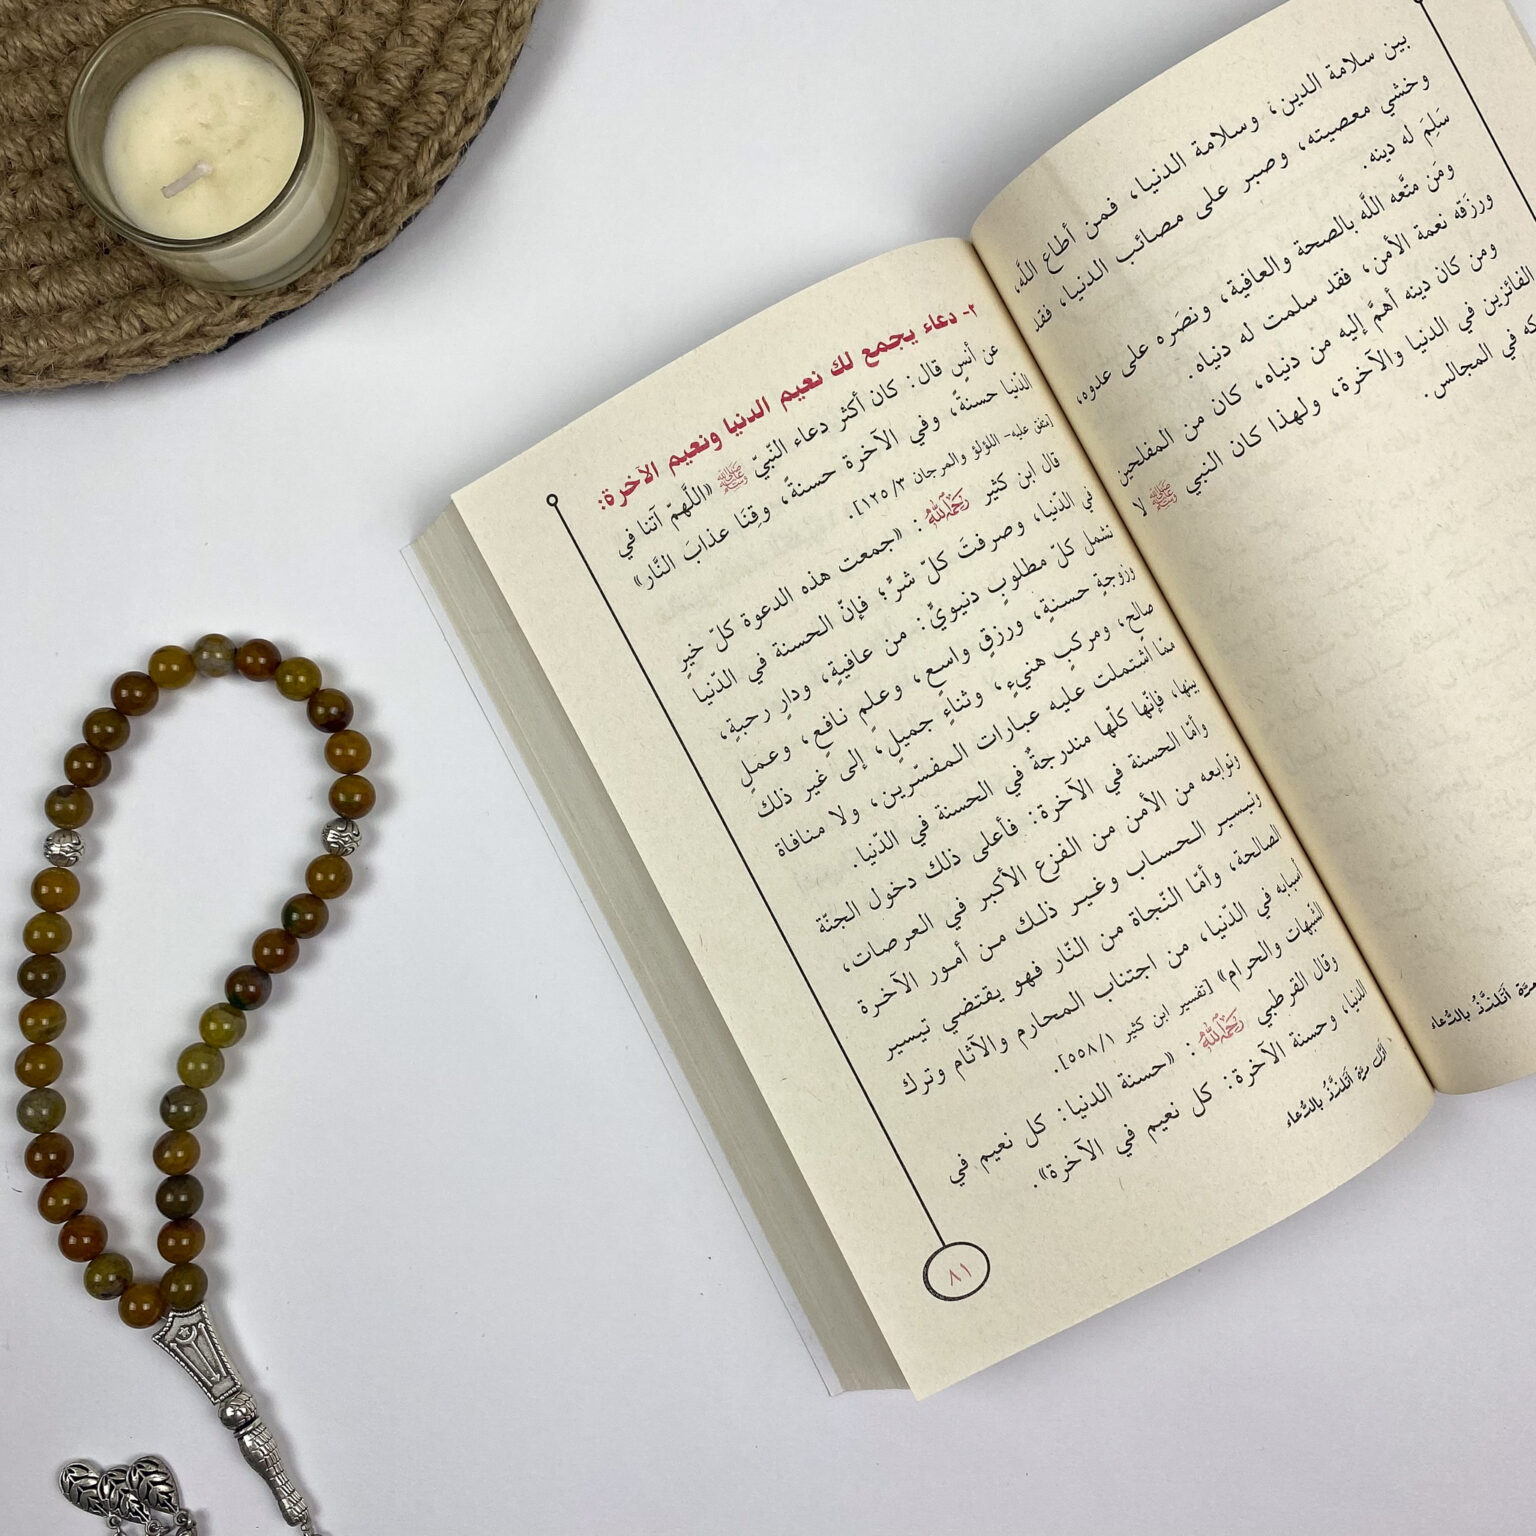 بين سلامة الدين، وسلامة الدنيا، فمن أطاع اللَّه،
وخشي معصيته، وصبر على مصائب الدنيا، فقد
سَلِمَ له دينه.
ومَن متَّعه اللَّه بالصحة والعافية، ونصَره على عدوه،
ورزَقه نعمة الأمن، فقد سلمت له دنياه.
ومن كان دينه أهمَّ إليه من دنياه، كان من المفلحين
الفائزين في الدنيا والآخرة، ولهذا كان النبي ﷺ لا
في المجالس.
أتلذَّذُ بالدُّعاء
٢- دعاء يجمع لك نعيم الدنيا ونعيم الآخرة:
عن أنسٍ قال: كان أكثر دعاء النّبيّ ﷺ «اللَّهمّ آتنا في
الدّنيا حسنةً، وفي الآخرة حسنةً، وقِنَا عذابَ النَّار»
[متفق عليه- اللؤلؤ والمرجان ٣/ ١٢٥].
قال ابن كثير رَحِمَهُ اللَّهُ: «جمعت هذه الدعوة كلّ خيرٍ
في الدّنيا، وصرفتَ كلّ شرٍّ؛ فإنّ الحسنة في الدّنيا
تشمل كلّ مطلوبٍ دنيويٍّ: من عافيةٍ، ودارٍ رحبةٍ،
وزوجةٍ حسنةٍ، ورزقٍ واسعٍ، وعلمٍ نافعٍ، وعملٍ
صالحٍ، ومركبٍ هنيءٍ، وثناءٍ جميلٍ، إلى غير ذلك
ممّا اشتملت عليه عبارات المفسّرين، ولا منافاة
بينها، فإنّها كلّها مندرجةٌ في الحسنة في الدّنيا.
وأمّا الحسنة في الآخرة: فأعلى ذلك دخول الجنّة
وتوابعه من الأمن من الفزع الأكبر في العرصات،
وتيسير الحساب وغير ذلك من أمور الآخرة
الصالحة، وأمّا النّجاة من النّار فهو يقتضي تيسير
أسبابه في الدّنيا، من اجتناب المحارم والآثام وترك
الشّبهات والحرام» [تفسير ابن كثير ١/ ٥٥٨].
وقال القرطبي رَحِمَهُ اللَّهُ: «حسنة الدنيا: كل نعيم في
الدنيا، وحسنة الآخرة: كل نعيم في الآخرة».
أوَّل مرَّة أتلذَّذُ بالدُّعاء
٨١